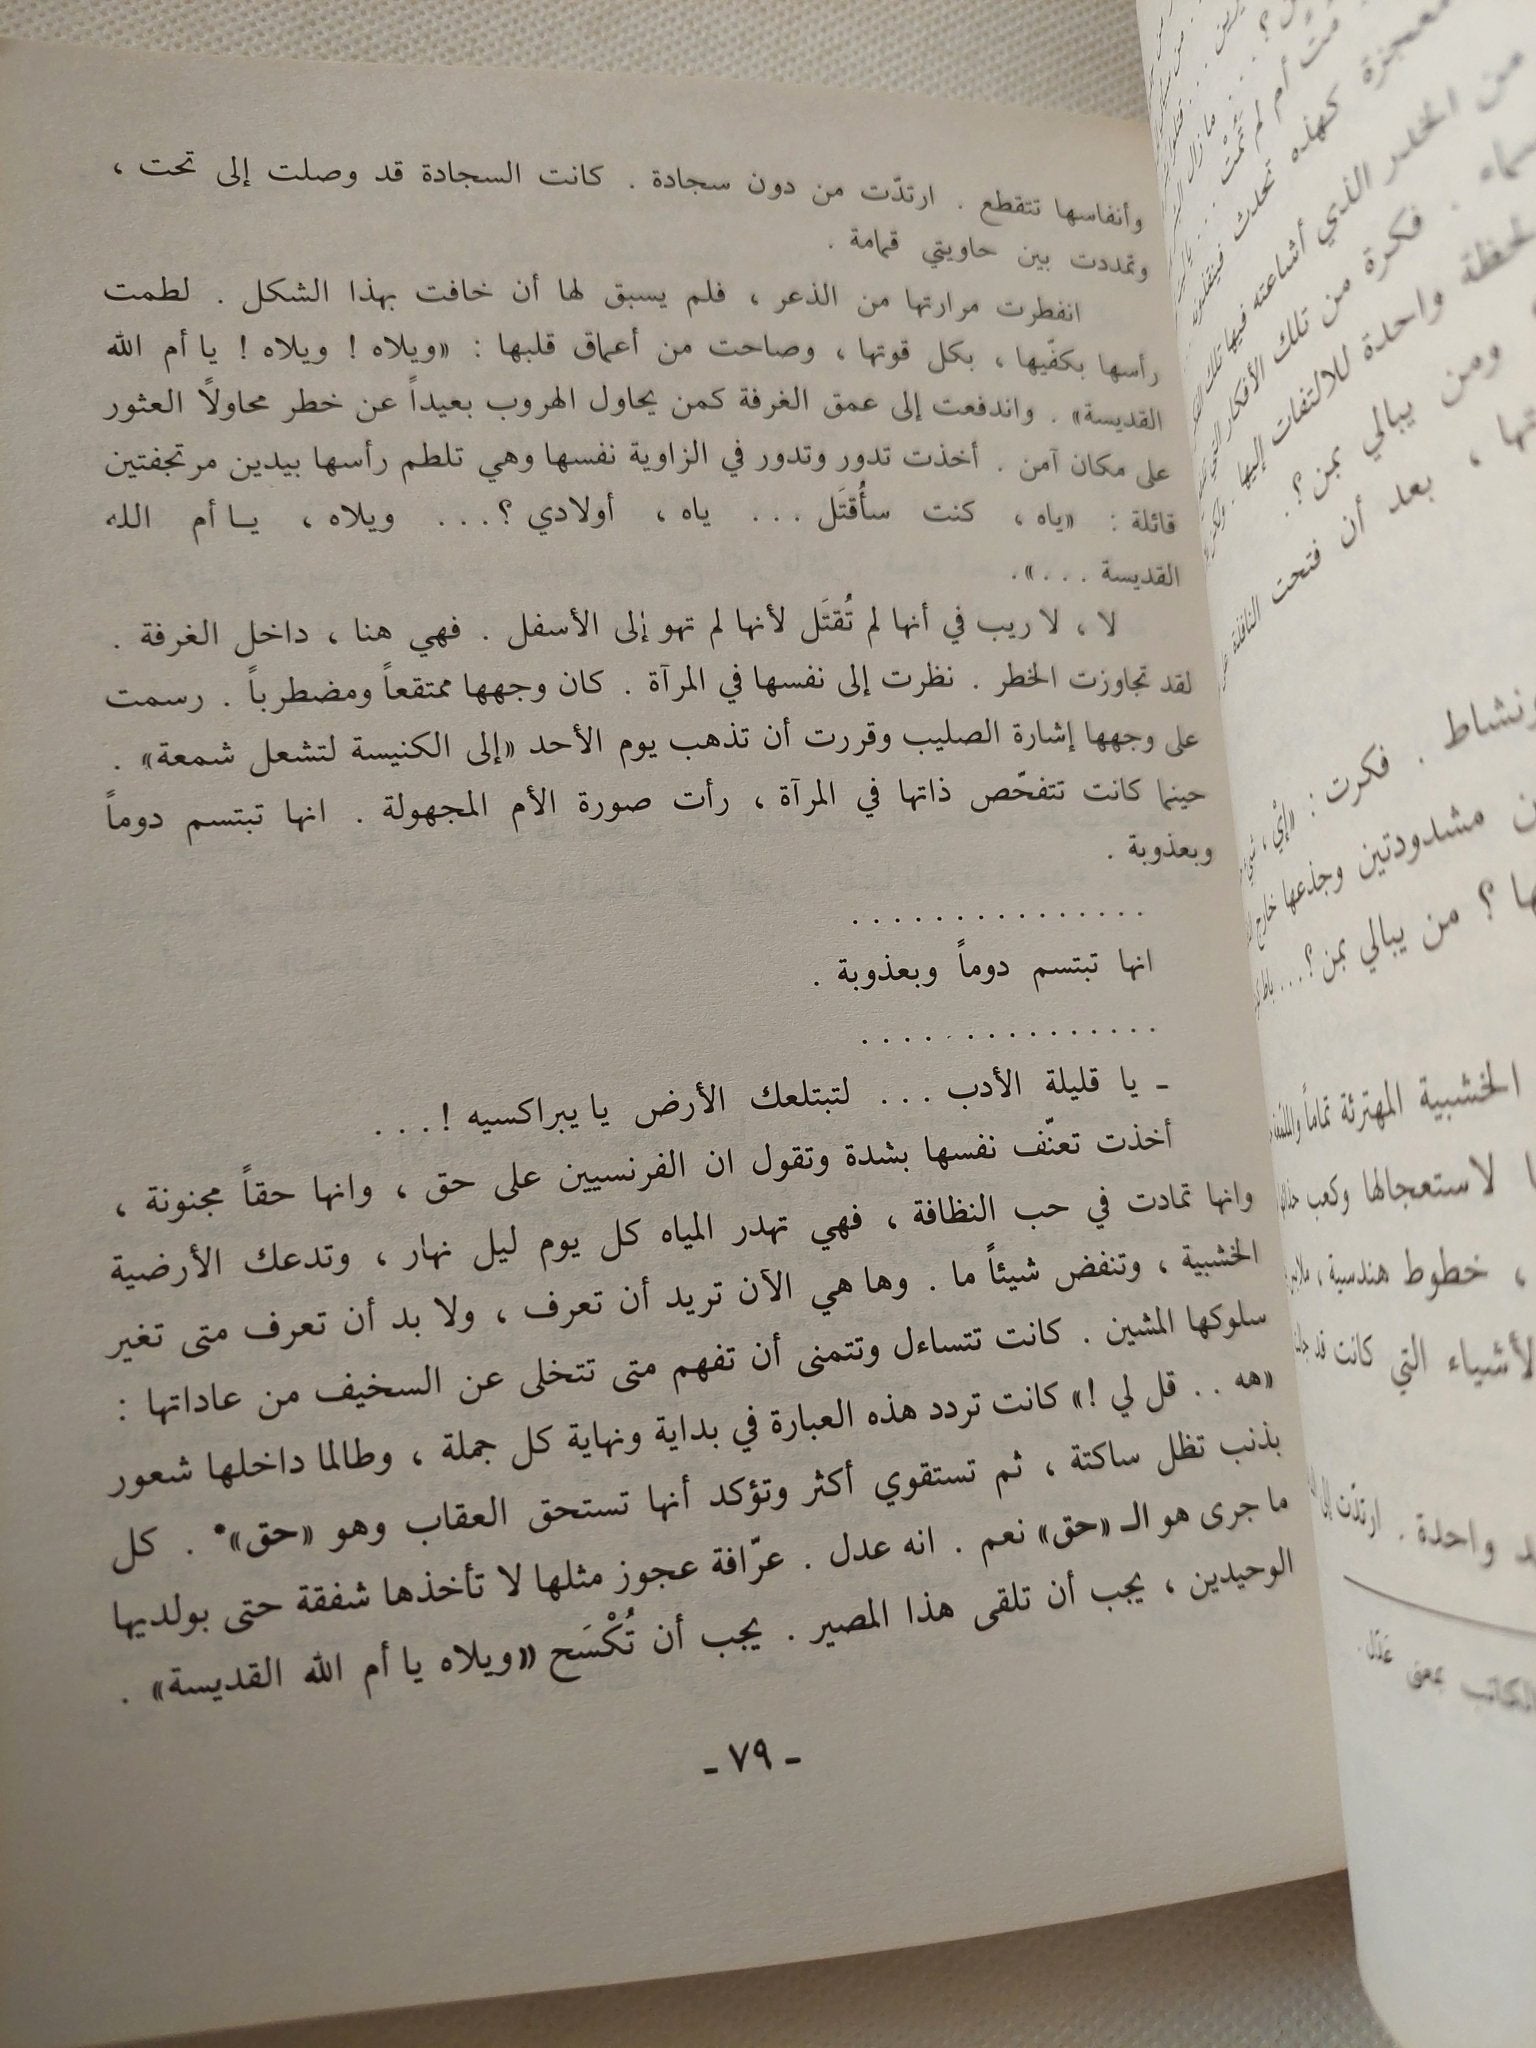 وأنفاسها تتقطع . ارتدّت من دون سجادة . كانت السجادة قد وصلت إلى تحت ،
وتمددت بين حاويتي قمامة .
انفطرت مرارتها من الذعر ، فلم يسبق لها أن خافت بهذا الشكل . لطمت
رأسها بكفّيها ، بكل قوتها ، وصاحت من أعماق قلبها : «ويلاه ! ويلاه ! يا أم الله
القديسة» . واندفعت إلى عمق الغرفة كمن يحاول الهروب بعيداً عن خطر محاولاً العثور
على مكان آمن . أخذت تدور وتدور في الزاوية نفسها وهي تلطم رأسها بيدين مرتجفتين
قائلة : «ياه ، كنت سأُقتَل ... ياه ، أولادي ؟ ... ويلاه ، يا أم الله
القديسة ...» .
لا ، لا ريب في أنها لم تُقتَل لأنها لم تهو إلى الأسفل . فهي هنا ، داخل الغرفة .
لقد تجاوزت الخطر . نظرت إلى نفسها في المرآة . كان وجهها ممتقعاً ومضطرباً . رسمت
على وجهها إشارة الصليب وقررت أن تذهب يوم الأحد «إلى الكنيسة لتشعل شمعة» .
حينما كانت تتفحّص ذاتها في المرآة ، رأت صورة الأم المجهولة . انها تبتسم دوماً
وبعذوبة .
. . . . . . . . . . . . . . .
انها تبتسم دوماً وبعذوبة .
. . . . . . . . . . . . . . .
ـ يا قليلة الأدب ... لتبتلعك الأرض يا يبراكسيه ! ...
أخذت تعنّف نفسها بشدة وتقول ان الفرنسيين على حق ، وانها حقاً مجنونة ،
وانها تمادت في حب النظافة ، فهي تهدر المياه كل يوم ليل نهار ، وتدعك الأرضية
الخشبية ، وتنفض شيئاً ما . وها هي الآن تريد أن تعرف ، ولا بد أن تعرف متى تغير
سلوكها المشين . كانت تتساءل وتتمنى أن تفهم متى تتخلى عن السخيف من عاداتها :
«هه .. قل لي !» كانت تردد هذه العبارة في بداية ونهاية كل جملة ، وطالما داخلها شعور
بذنب تظل ساكتة ، ثم تستقوي أكثر وتؤكد أنها تستحق العقاب وهو «حق»* . كل
ما جرى هو الـ «حق» نعم . انه عدل . عرّافة عجوز مثلها لا تأخذها شفقة حتى بولديها
الوحيدين ، يجب أن تلقى هذا المصير . يجب أن تُكْسَح «ويلاه يا أم الله القديسة» .
ـ ٧٩ ـ
معجزة كهذه تحدث
من الخدر الذي أشاعته فيها تلك
فكرة من تلك الأفكار التي
لحظة واحدة للالتفات إليها .
ومن يبالي بمن ؟ .
، بعد أن فتحت النافذة
ونشاط . فكرت : «إيْ ،
مشدودتين وجذعها خارج
؟ من يبالي بمن ؟ ...
الخشبية المهترئة تماماً
لاستعجالها وكعب
، خطوط هندسية ،
الأشياء التي كانت قد
واحدة . ارتدّت إلى
الكاتب بمعنى عَدْل .